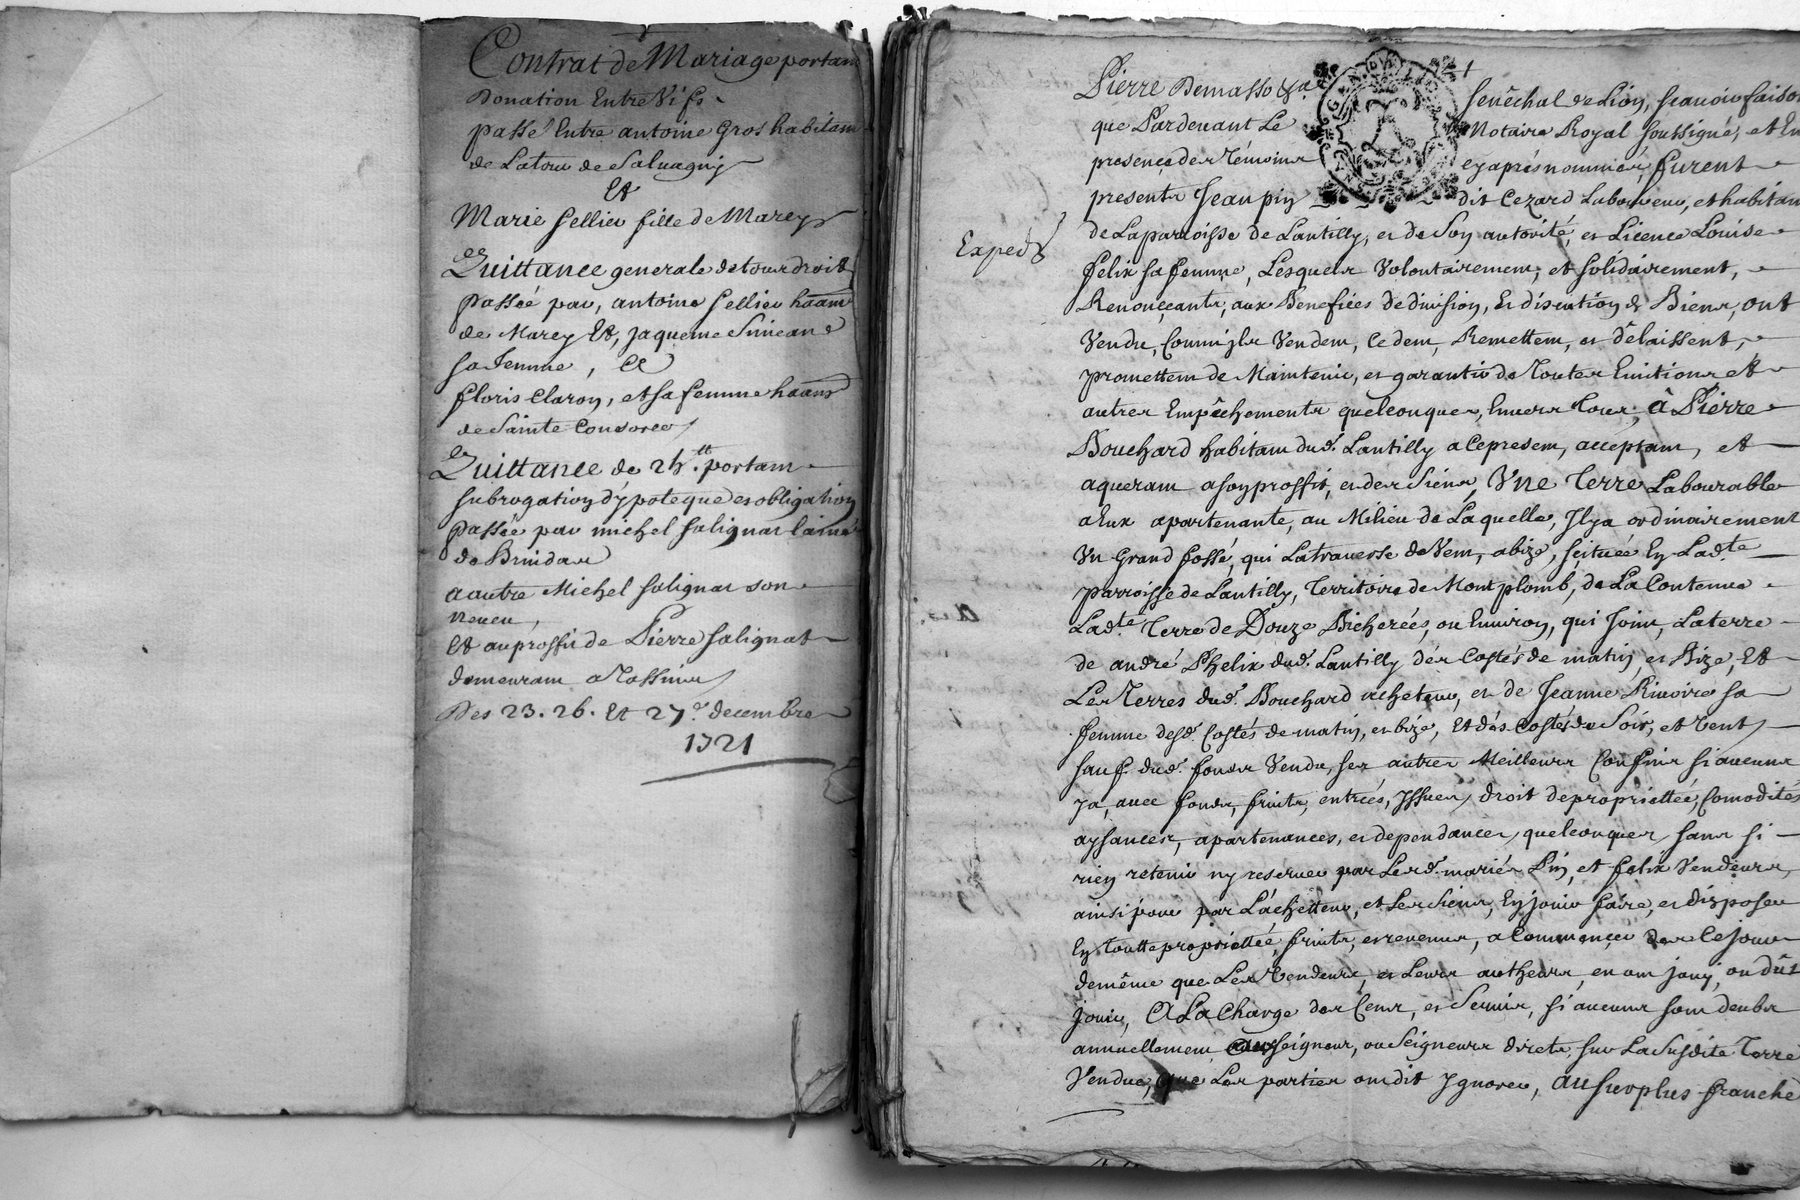 Contrat de Mariage portam
Donation Entre Vifs
passé Entre antoine Gros habitam
de Latour de Salvagny
Et
Marie sellier fille de Marcy
Quittance generale de tour droit
passée par, antoine sellier haant
de Marcy Et, jaqueme Simeane
sa femme, Et
floris claron, et sa femme haans
de Sainte Consorce
Quittance de 24.tt portam
subrogation d'ypoteque et obligation
passée par michel salignat lainé
de Brindas
a autre Michel salignat son
neveu,
Et au proffit de Pierre salignat
demeuram a Tassin
Des 23. 26. Et 27.e decembre
1721
Pierre Demasso &a. Senêchal de Lion, sçavoir faison
que Pardevant Le Notaire Royal soussigné, et En
presence des Témoins cy aprés nommés, furent
presents Jean pin dit Cezard Laboureur, et habitan
de La paroisse de Lantilly, et de Son autorité, et Licence Louise
Expedé
felix sa femme, Lesquels Volontairement, et solidairement,
Renonçants, aux Benefices de division, Et discution de Biens, ont
Vendu, Comm'ils Vendem, Cedem, Remettem, et délaissent,
promettem de Maintenir, et garantir de Toutes Evitions et
autres Empêchements quelconques, Envers tous, â Pierre
Bouchard habitam dud. Lantilly a ce presem, acceptam, et
aqueram a son proffit, et des Siens, Vne Terre Labourable
a Eux apartenante, au Milieu de Laquelle, Il y a ordinairement
Vn Grand fossé, qui La traverse de Vent, a bize, scituée En Lad.te
parroisse de Lantilly, Territoire de Montplomb, de La Contenue
Lad.te Terre de Douze Bicherées, ou Environ, qui Joint, La terre
de andré Phelix dud. Lantilly dés Costés de matin, et Bize, Et
Les Terres dud. Bouchard acheteur, et de Jeanne Rivoire sa
femme desd. Costés de matin, et bize, Et dés Costés de Soir, et Vent,
sauf dud. fonds Vendu, ses autres Meilleurs Confins si aucuns
y a, avec fonds, fruits, entrées, Issues, droit de proprietteé, Comodités
aysances, apartenances, et dependances, quelconques, sans si
rien retenir ny reserver par Lesd. mariés Pin, et felix Vendeurs,
ainsi pour par L'achetteur, et Les Siens, En jouir faire, et disposer
En toutte proprietteé, fruits, et revenus, a Commencer des Ce jour
demême que Les Vendeurs, et Leurs autheurs, en om jouy, ou dût
jouir, A La Charge des Cens, et Servis, si aucuns som deubs
annuellement au seigneur, ou Seigneurs directs, sur La Susdite Terre
Vendue, que Les parties om dit ygnorer, au surplus franche